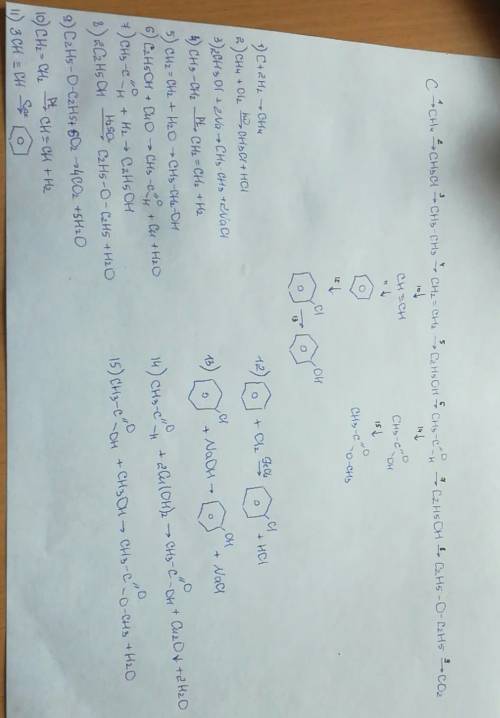 C →1 CH4 →2 CH3Cl →3 CH3-CH3 →4 CH2=CH2 →5 C2H5OH →6 CH3-C=O-H →7 C2H5OH →8 C2H5-O-C2H5 →9 CO2
10↓ 14↓
CH≡CH CH3-C=O-OH
11↓ 15↓
CH3-C=O-O-CH3
12↓
Cl →13 OH
1) C+2H2 → CH4
2) CH4 + Cl2 hν→ CH3Cl + HCl
3) 2CH3Cl + 2Na → CH3-CH3 + 2NaCl
4) CH3-CH3 Pt→ CH2=CH2 + H2
5) CH2=CH2 + H2O → CH3-CH2-OH
6) C2H5OH + CuO → CH3-C=O-H + Cu + H2O
7) CH3-C=O-H + H2 → C2H5OH
8) 2C2H5OH H2SO4→ C2H5-O-C2H5 + H2O
9) C2H5-O-C2H5 + 6O2 → 4CO2 + 5H2O
10) CH2=CH2 Pt→ CH≡CH + H2
11) 3CH≡CH →
12) + Cl2 → Cl + HCl
13) Cl + NaOH → OH + NaCl
14) CH3-C=O-H + 2Cu(OH)2 → CH3-C=O-OH + Cu2O↓ + 2H2O
15) CH3-C=O-OH + CH3OH → CH3-C=O-O-CH3 + H2O